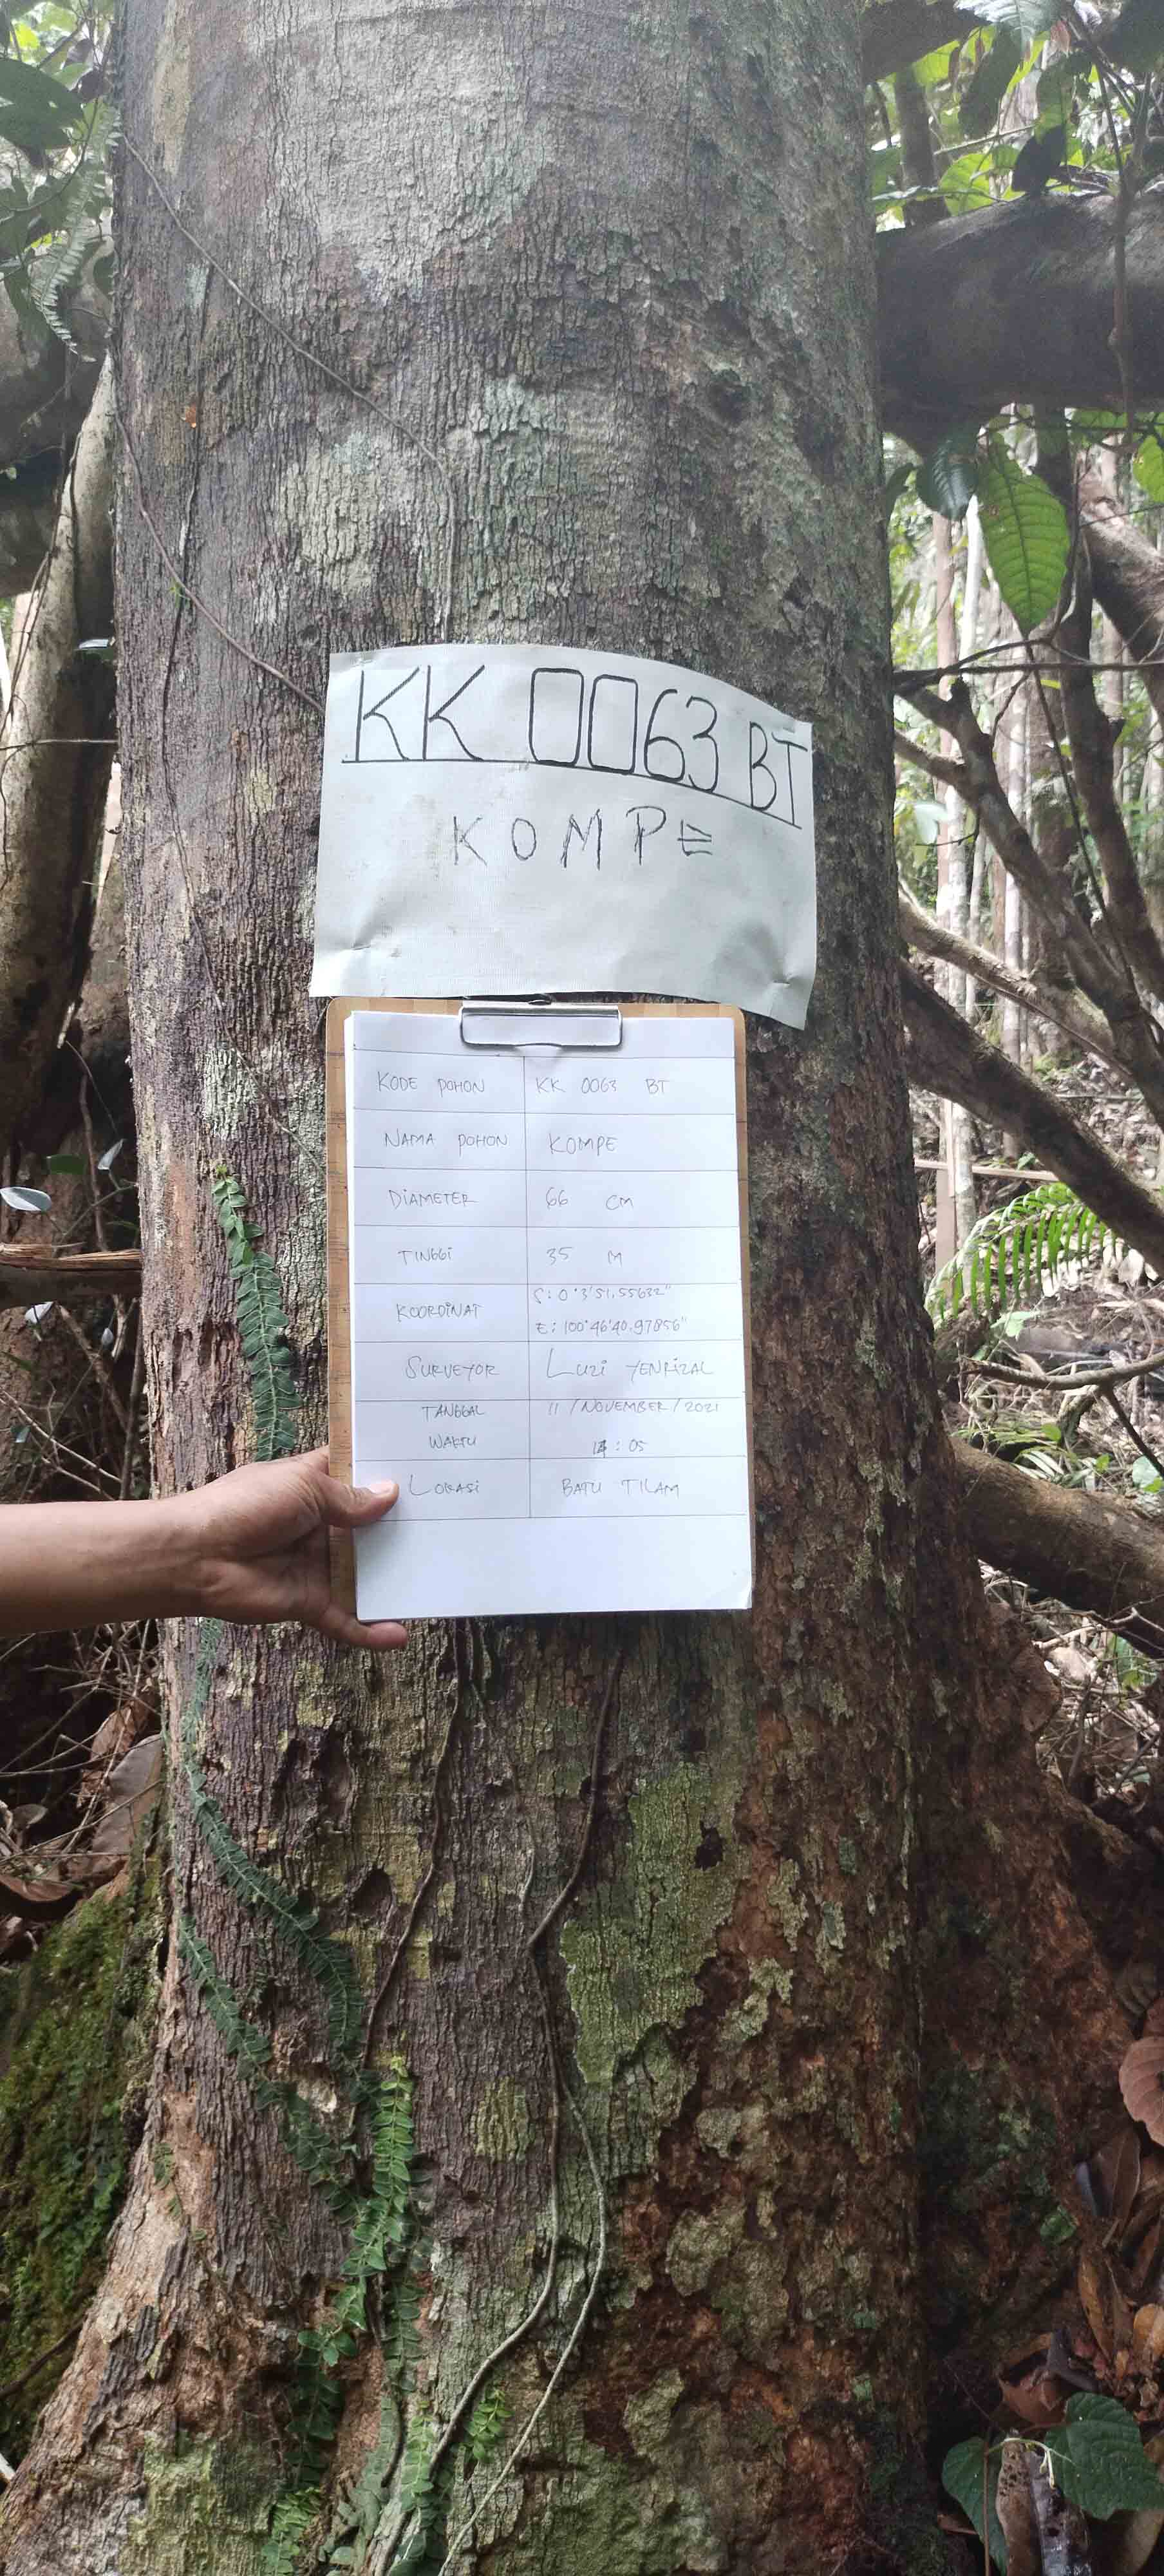 KK 0063 BT
KOMPE
KODE POHON KK 0063 BT
NAMA POHON KOMPE
DIAMETER 66 CM
TINGGI 35 M
KOORDINAT S: 0°3'51,55632"
E: 100°46'40,97856"
SURVEYOR LUZI YENRIZAL
TANGGAL 11/NOVEMBER/2021
WAKTU 14:05
LOKASI BATU TILAM